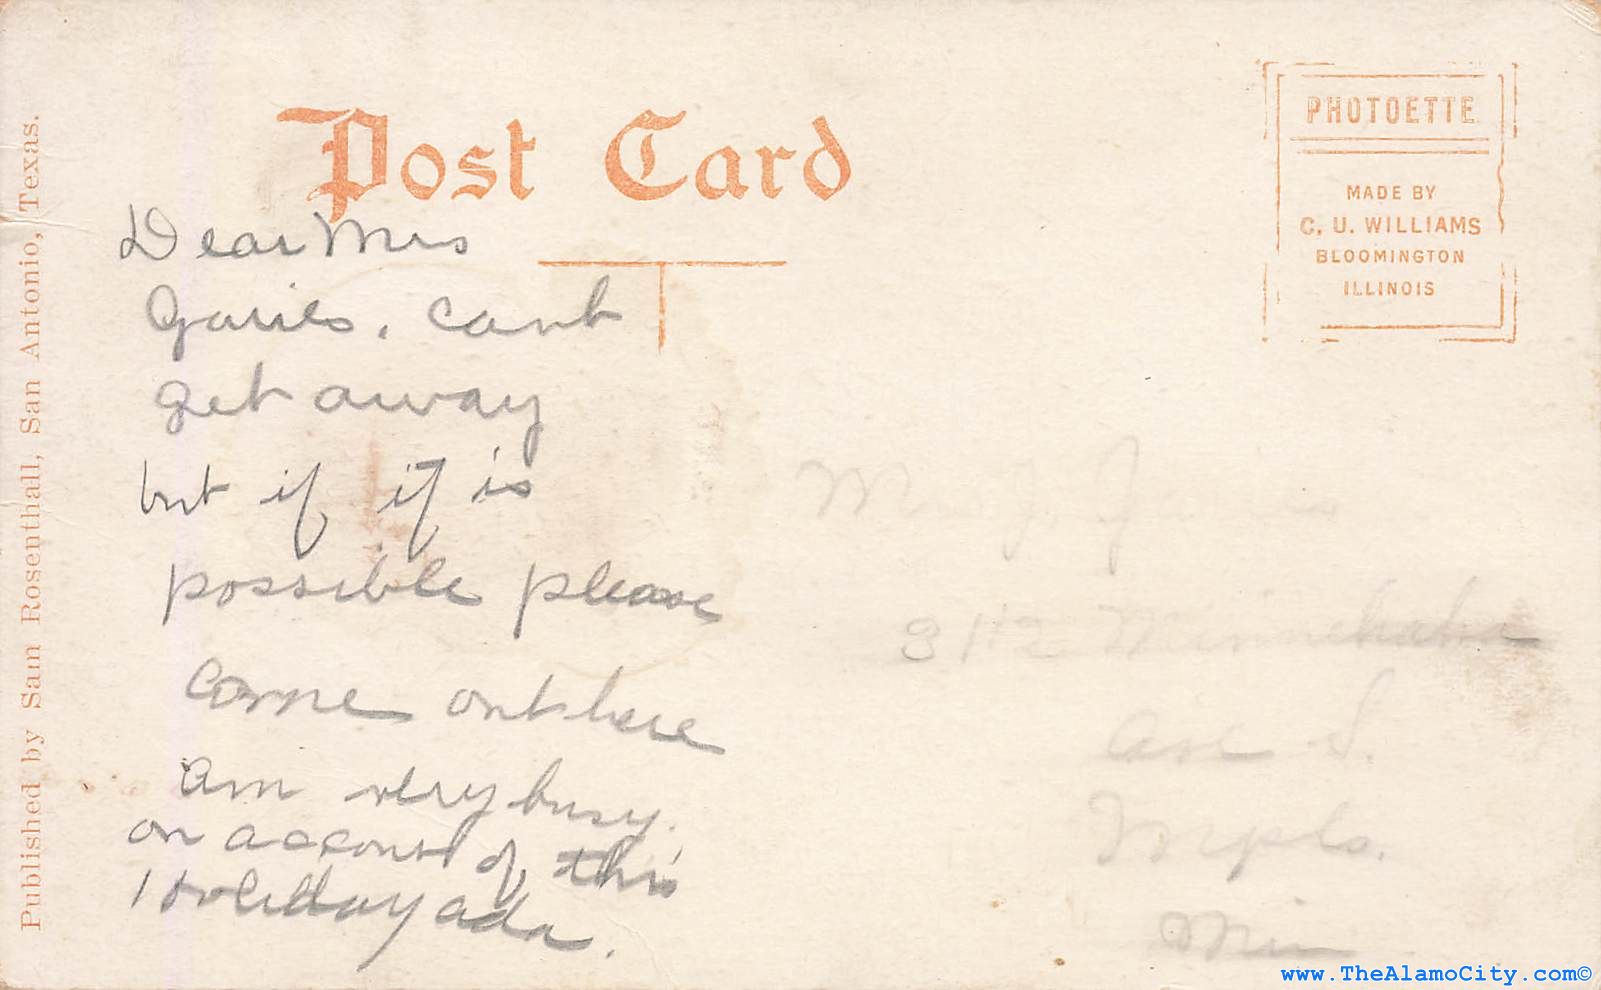 Post Card
Published by Sam Rosenthall, San Antonio, Texas.
PHOTOETTE
MADE BY
C. U. WILLIAMS
BLOOMINGTON
ILLINOIS
Dear Mrs
cant
get away
but if it is
possible please
come out here
am very busy.
on account of this
Holiday ada.
Mrs J.
3112 Minnehaha
Ave S.
Mpls.
Minn
www.TheAlamoCity.com©